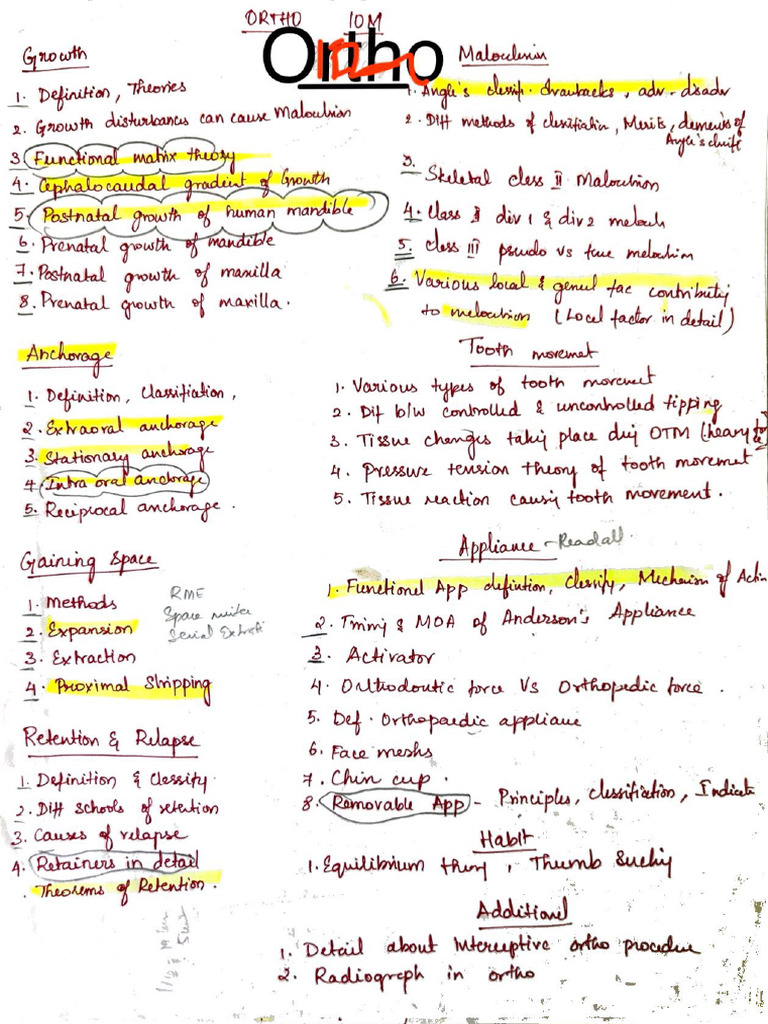 ORTHO 10M
Ortho
Growth
1. Definition, Theories
2. Growth disturbances can cause Malocclusion
3. Functional matrix theory
4. Cephalocaudal gradient of Growth
5. Postnatal growth of human mandible
6. Prenatal growth of mandible
7. Postnatal growth of maxilla
8. Prenatal growth of maxilla.
Anchorage
1. Definition, Classification,
2. Extraoral anchorage
3. Stationary anchorage
4. Intra oral anchorage
5. Reciprocal anchorage.
Gaining Space
1. Methods
RME
2. Expansion
3. Extraction
4. Proximal Stripping
Retention & Relapse
1. Definition & Classify.
2. Diff schools of retention
3. Causes of relapse
4. Retainers in detail
. Theorems of Retention.
Malocclusion
1. Angle's classif. drawbacks, adv. disadv
2. Diff methods of classification, Merits, demerits of
Angle's classif
3. Skeletal class II Malocclusion
4. Class II div 1 & div 2 maloccl
5. class III pseudo vs true malocclusion
6. Various local & general fac contributing
to malocclusion (Local factor in detail)
Tooth movement
1. Various types of tooth movement
2. Dif b/w controlled & uncontrolled tipping
3. Tissue changes taking place durig OTM (heavy
4. Pressure tension theory of tooth movemet
5. Tissue reaction causing tooth movement.
Appliance - Read all.
1. Functional App defintion, Classify, Mechanism of Actin
2. Triming & MOA of Anderson's Appliance
3. Activator
4. Orthodontic force Vs Orthopedic force.
5. Def. Orthopaedic appliance
6. Face masks
7. Chin cup.
8. Removable App - Principles, classification, Indicate
Habit
1. Equilibrium theory, Thumb Sucking
Additional
1. Detail about Interceptive ortho procedure
2. Radiograph in ortho